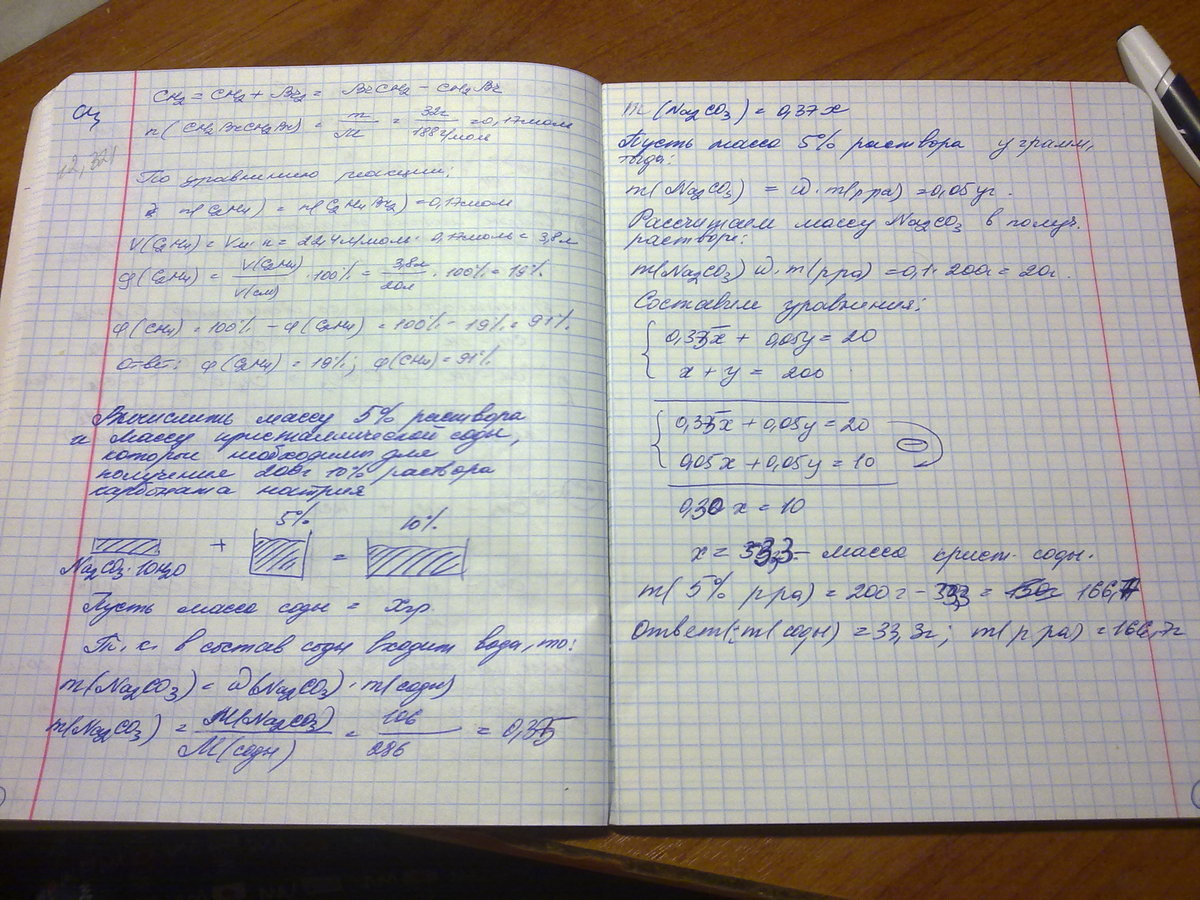 CH2 = CH2 + Br2 = BrCH2 - CH2Br
n(CH2BrCH2Br) = m/M = 32г/188г/моль = 0,17моль
По уравнению реакции:
n(C2H4) = n(C2H4Br2) = 0,17моль
V(C2H4) = Vм·n = 22,4л/моль · 0,17моль = 3,8л
φ(C2H4) = V(C2H4)/V(см) · 100% = 3,8л/20л · 100% = 19%
φ(CH4) = 100% - φ(C2H4) = 100% - 19% = 91%
Ответ: φ(C2H4) = 19%; φ(CH4) = 91%
Вычислить массу 5% раствора
и массу кристаллической соды,
которые необходимы для
получения 200г 10% раствора
карбоната натрия
5% 10%
+ =
Na2CO3·10H2O
Пусть масса соды = xгр.
Т.к. в состав соды входит вода, то:
m(Na2CO3) = ω(Na2CO3) · m(соды)
m(Na2CO3) = M(Na2CO3)/M(соды) = 106/286 = 0,35
m(Na2CO3) = 0,37x
Пусть масса 5% раствора y грамм,
тогда:
m(Na2CO3) = ω·m(р-ра) = 0,05yг.
Рассчитаем массу Na2CO3 в получ.
растворе:
m(Na2CO3) ω·m(р-ра) = 0,1·200г = 20г.
Составим уравнения:
0,35x + 0,05y = 20
x + y = 200
0,35x + 0,05y = 20
0,05x + 0,05y = 10
0,30x = 10
x = 33,3 - масса крист. соды.
m(5% р-ра) = 200г - 33,3 = 166,7
Ответ: m(соды) = 33,3г; m(р-ра) = 166,7г